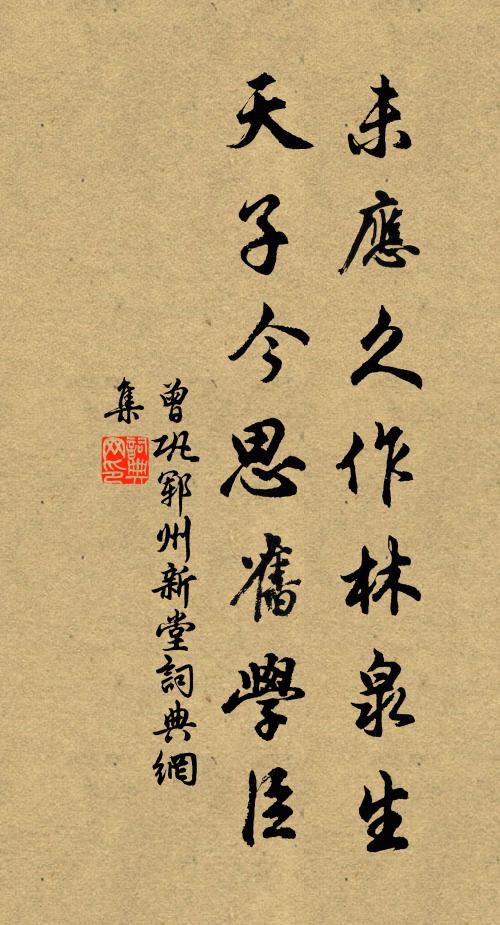 未應久作林泉生
天子今思舊學臣
曾巩鄆州新堂詞典網
集
詞典
网印